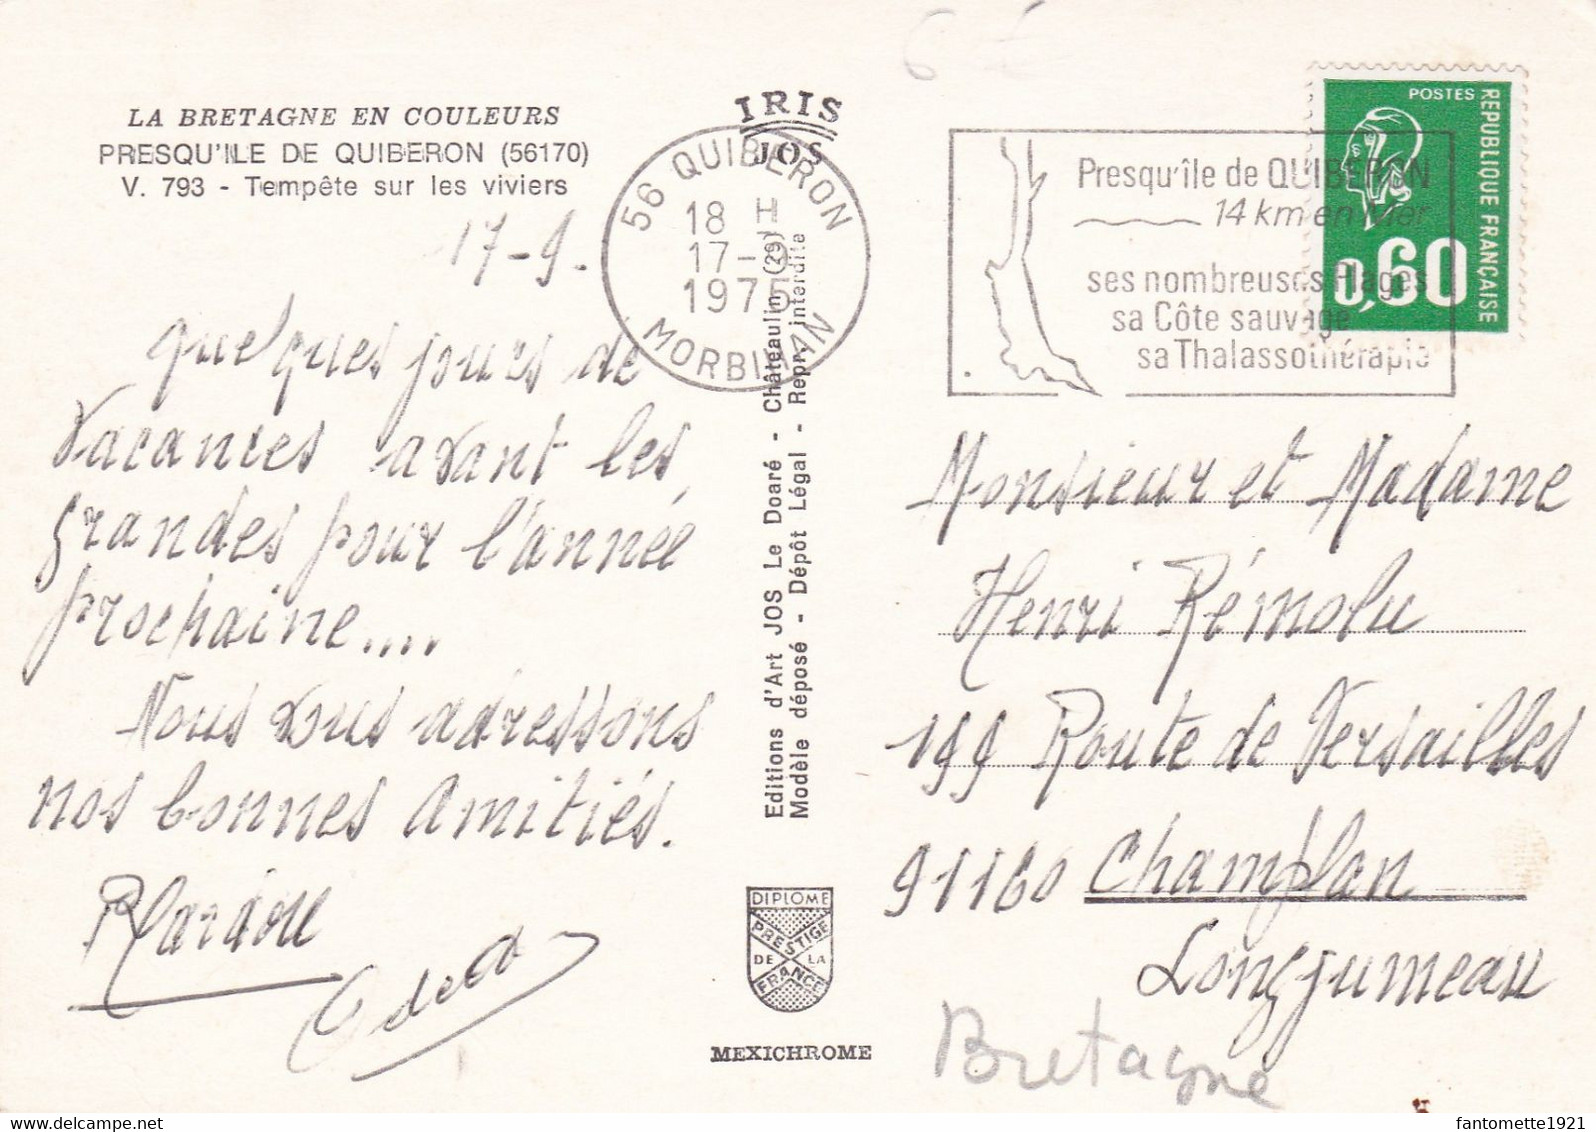 6 €
LA BRETAGNE EN COULEURS
PRESQU'ILE DE QUIBERON (56170)
V. 793 - Tempête sur les viviers
17-9.
quelques jours de
vacances avant les
grandes pour l'année
prochaine....
Nous vous adressons
nos bonnes amitiés.
IRIS
JOS
56 QUIBERON
18 H
17-9
1975
MORBIHAN
Editions d'Art JOS Le Doaré - Châteaulin (29)
Modèle déposé - Dépôt Légal - Repr. interdite
DIPLOME
PRESTIGE
DE LA
FRANCE
MEXICHROME
Presqu'île de QUIBERON
14 km en Mer
ses nombreuses Plages
sa Côte sauvage
sa Thalassothérapie
POSTES
REPUBLIQUE FRANÇAISE
0,60
Monsieur et Madame
Henri Rémolu
199 Route de Versailles
91160 Champlan
Longjumeau
Bretagne
fantomette1921